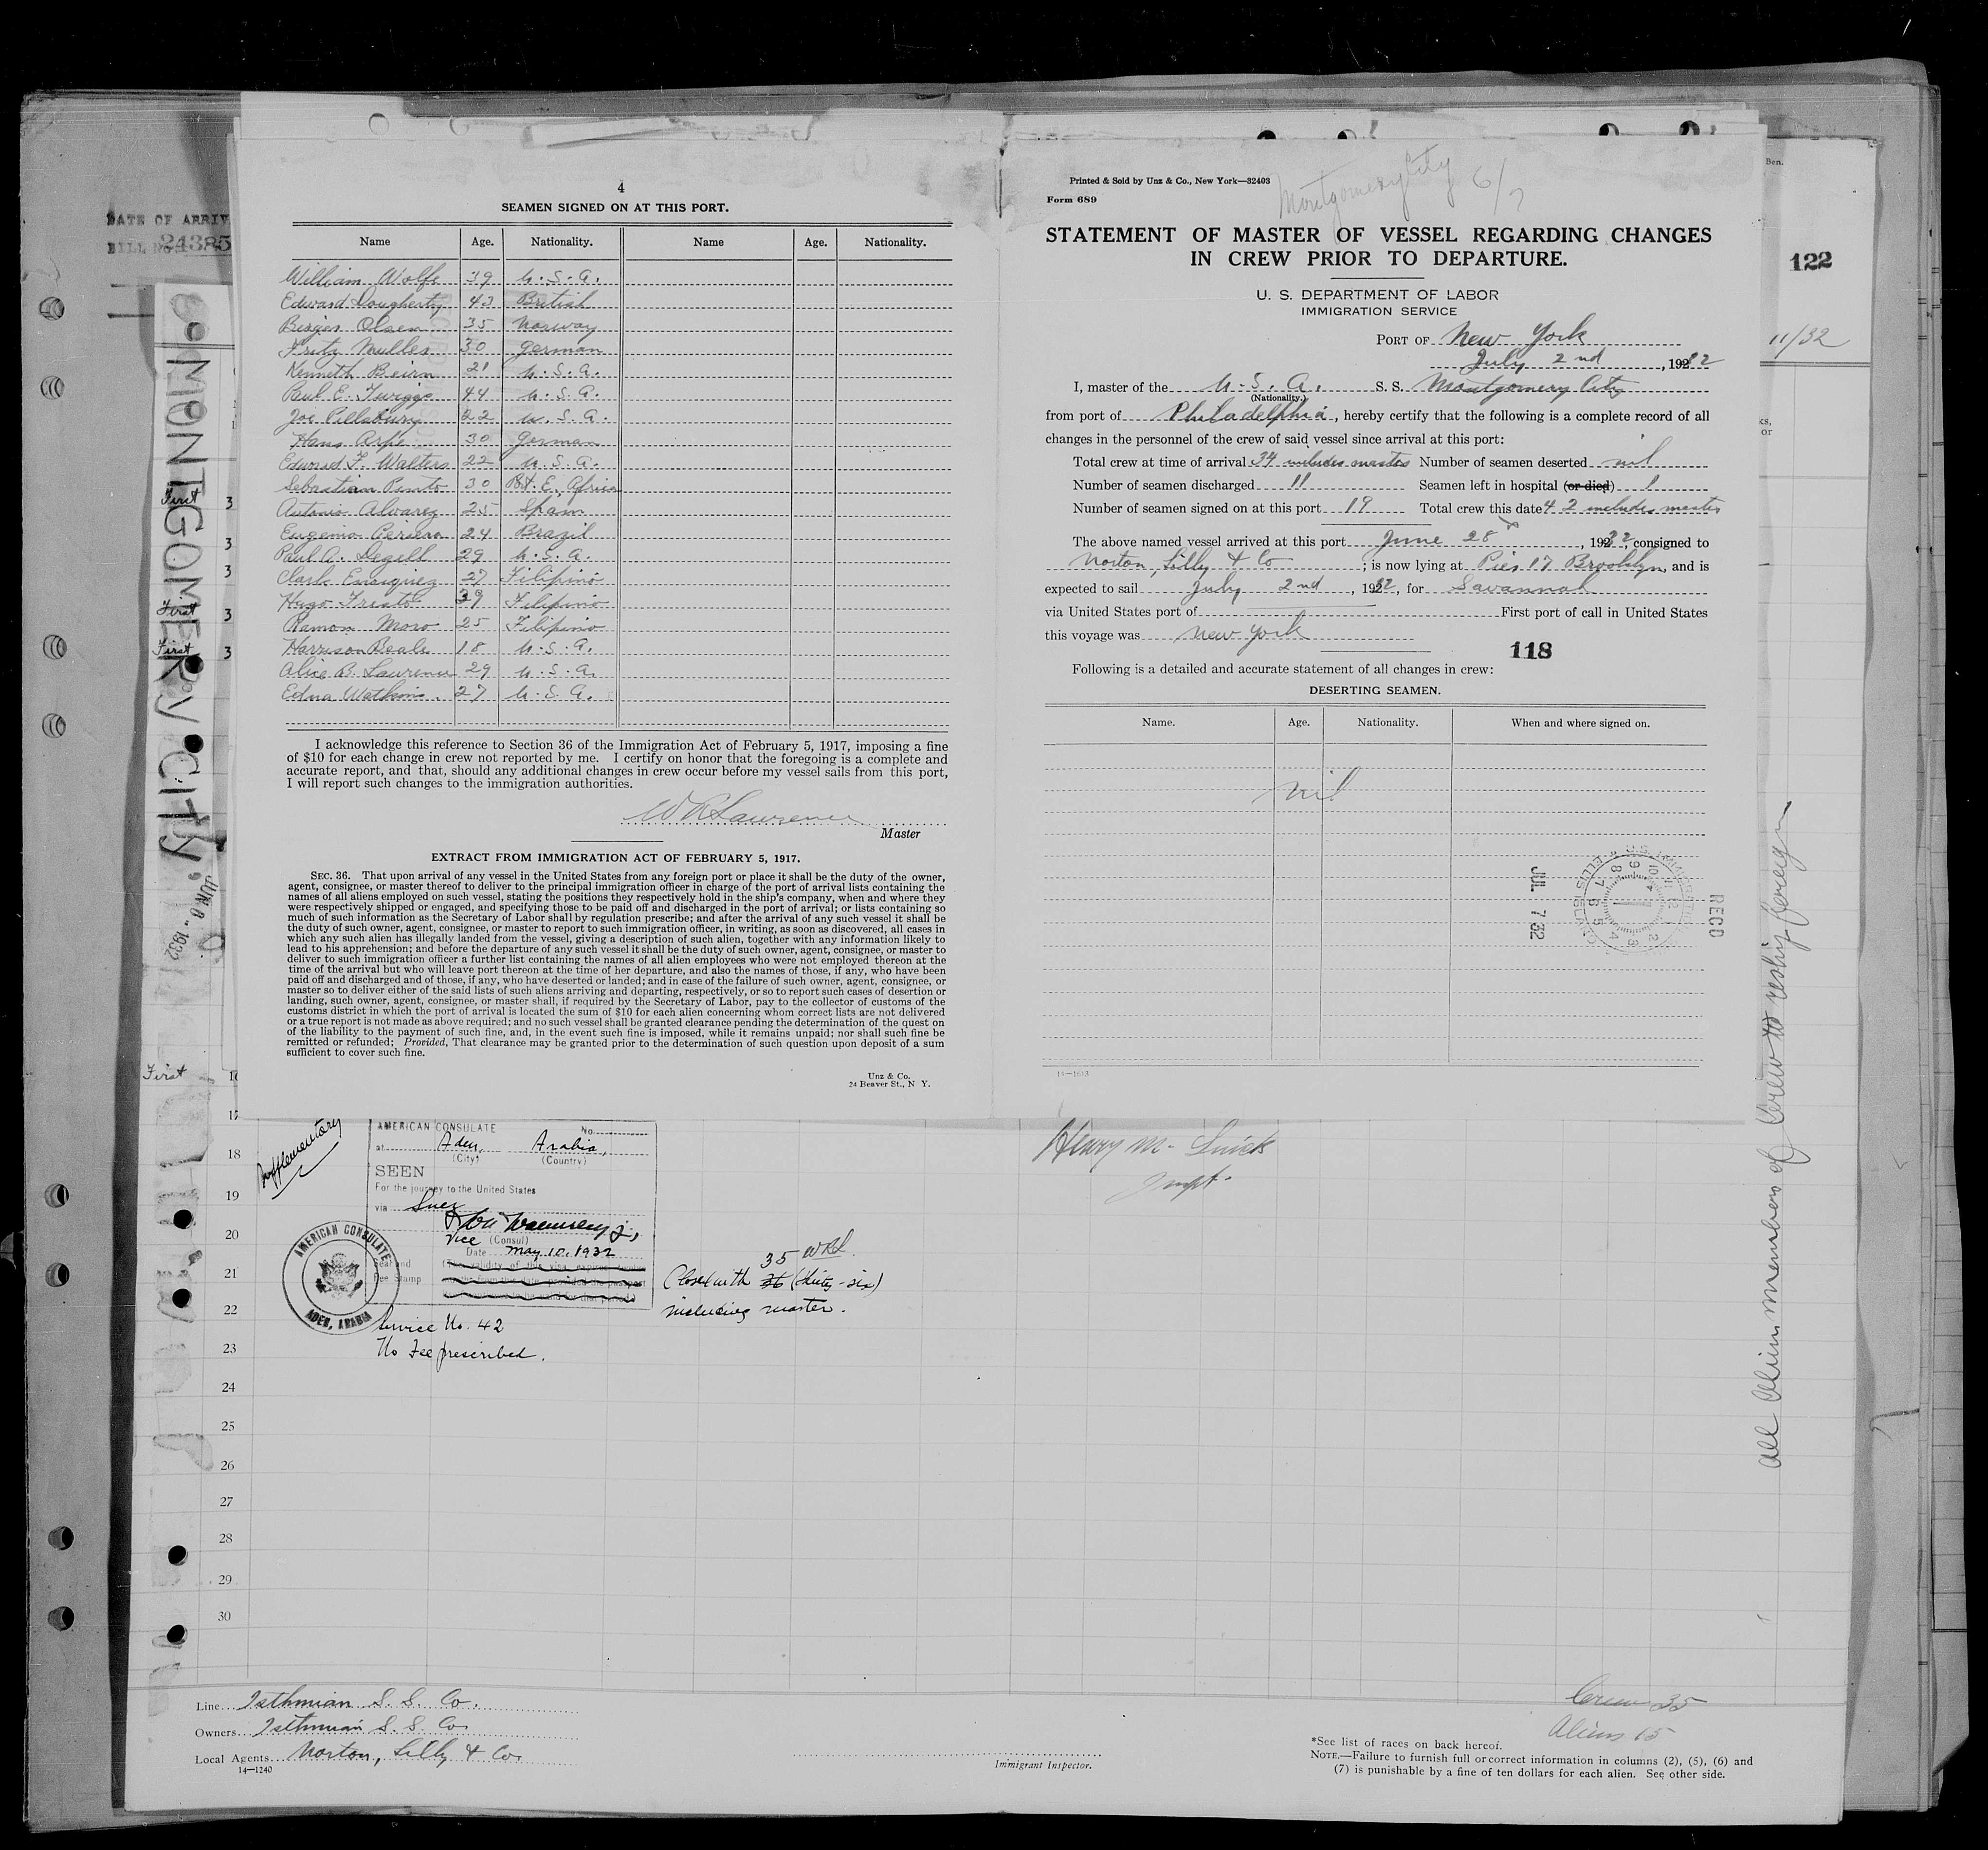 4
SEAMEN SIGNED ON AT THIS PORT.
Name Age. Nationality. Name Age. Nationality.
William Wolfe 39 U.S.A.
Edward Dougherty 43 British
Birger Olsen 35 Norway
Fritz Muller 30 German
Kenneth Beirn 21 U.S.A.
Paul E. Twiggs 44 U.S.A.
Joe Pillsbury 22 U.S.A.
Hans Arpe 30 German
Edward F. Walters 22 U.S.A.
Sebastian Pinto 30 Africa
Antonio Alvarez 25 Spain
Eugenio Periera 24 Brazil
Paul A. Legell 29 U.S.A.
Clark Enriquez 27 Filipino
Hugo 39 Filipino
Ramon Moro 25 Filipino
Harrison Beale 18 U.S.A.
Alice B. Lawrence 29 U.S.A.
Edna Watkins 27 U.S.A.
I acknowledge this reference to Section 36 of the Immigration Act of February 5, 1917, imposing a fine
of $10 for each change in crew not reported by me. I certify on honor that the foregoing is a complete and
accurate report, and that, should any additional changes in crew occur before my vessel sails from this port,
I will report such changes to the immigration authorities.
Lawrence
Master
EXTRACT FROM IMMIGRATION ACT OF FEBRUARY 5, 1917.
SEC. 36. That upon arrival of any vessel in the United States from any foreign port or place it shall be the duty of the owner,
agent, consignee, or master thereof to deliver to the principal immigration officer in charge of the port of arrival lists containing the
names of all aliens employed on such vessel, stating the positions they respectively hold in the ship's company, when and where they
were respectively shipped or engaged, and specifying those to be paid off and discharged in the port of arrival; or lists containing so
much of such information as the Secretary of Labor shall by regulation prescribe; and after the arrival of any such vessel it shall be
the duty of such owner, agent, consignee, or master to report to such immigration officer, in writing, as soon as discovered, all cases in
which any such alien has illegally landed from the vessel, giving a description of such alien, together with any information likely to
lead to his apprehension; and before the departure of any such vessel it shall be the duty of such owner, agent, consignee, or master to
deliver to such immigration officer a further list containing the names of all alien employees who were not employed thereon at the
time of the arrival but who will leave port thereon at the time of her departure, and also the names of those, if any, who have been
paid off and discharged and of those, if any, who have deserted or landed; and in case of the failure of such owner, agent, consignee, or
master so to deliver either of the said lists of such aliens arriving and departing, respectively, or so to report such cases of desertion or
landing, such owner, agent, consignee, or master shall, if required by the Secretary of Labor, pay to the collector of customs of the
customs district in which the port of arrival is located the sum of $10 for each alien concerning whom correct lists are not delivered
or a true report is not made as above required; and no such vessel shall be granted clearance pending the determination of the quest on
of the liability to the payment of such fine, and, in the event such fine is imposed, while it remains unpaid; nor shall such fine be
remitted or refunded; Provided, That clearance may be granted prior to the determination of such question upon deposit of a sum
sufficient to cover such fine.
Unz & Co.
24 Beaver St., N Y.
Printed & Sold by Unz & Co., New York—32403
Form 689
Montgomery City 6/7
STATEMENT OF MASTER OF VESSEL REGARDING CHANGES
IN CREW PRIOR TO DEPARTURE.
U. S. DEPARTMENT OF LABOR
IMMIGRATION SERVICE
PORT OF New York
July 2nd, 1932
I, master of the U.S.A. S. S. Montgomery City
(Nationality.)
from port of Philadelphia, hereby certify that the following is a complete record of all
changes in the personnel of the crew of said vessel since arrival at this port:
Total crew at time of arrival 34 includes master Number of seamen deserted nil
Number of seamen discharged 11 Seamen left in hospital (or died) 1
Number of seamen signed on at this port 19 Total crew this date 42 includes master
The above named vessel arrived at this port June 28, 1932, consigned to
Norton, Lilly & Co; is now lying at Pier 17 Brooklyn, and is
expected to sail July 2nd, 1932, for Savannah
via United States port of First port of call in United States
this voyage was New York
118
Following is a detailed and accurate statement of all changes in crew:
DESERTING SEAMEN.
Name. Age. Nationality. When and where signed on.
nil
RECD
JUL 7 32
14—1613
DATE OF ARRIV
BILL NO. 24385
MONTGOMERY CITY
JUN 8 - 1932
First 3
3
3
First 3
First 3
First 16
17
18
19
20
21
22
23
24
25
26
27
28
29
30
Supplementary
AMERICAN CONSULATE No.
at Aden, Arabia,
(City) (Country)
SEEN
For the journey to the United States
via Suez
Vice (Consul)
Date May 10, 1932
Seal and
Fee Stamp
AMERICAN CONSULATE
ADEN, ARABIA
Service No. 42
No Fee prescribed.
35
Closed with 36 (thirty-six)
including master.
Henry M.
Inspt.
All Alien members of Crew to reship foreign
Ben.
122
11/32
ks,
or
Line Isthmian S. S. Co.
Owners Isthmian S. S. Co.
Local Agents Norton, Lilly & Co.
14—1240
Immigrant Inspector.
Crew 35
Aliens 15
*See list of races on back hereof.
NOTE.—Failure to furnish full or correct information in columns (2), (5), (6) and
(7) is punishable by a fine of ten dollars for each alien. See other side.